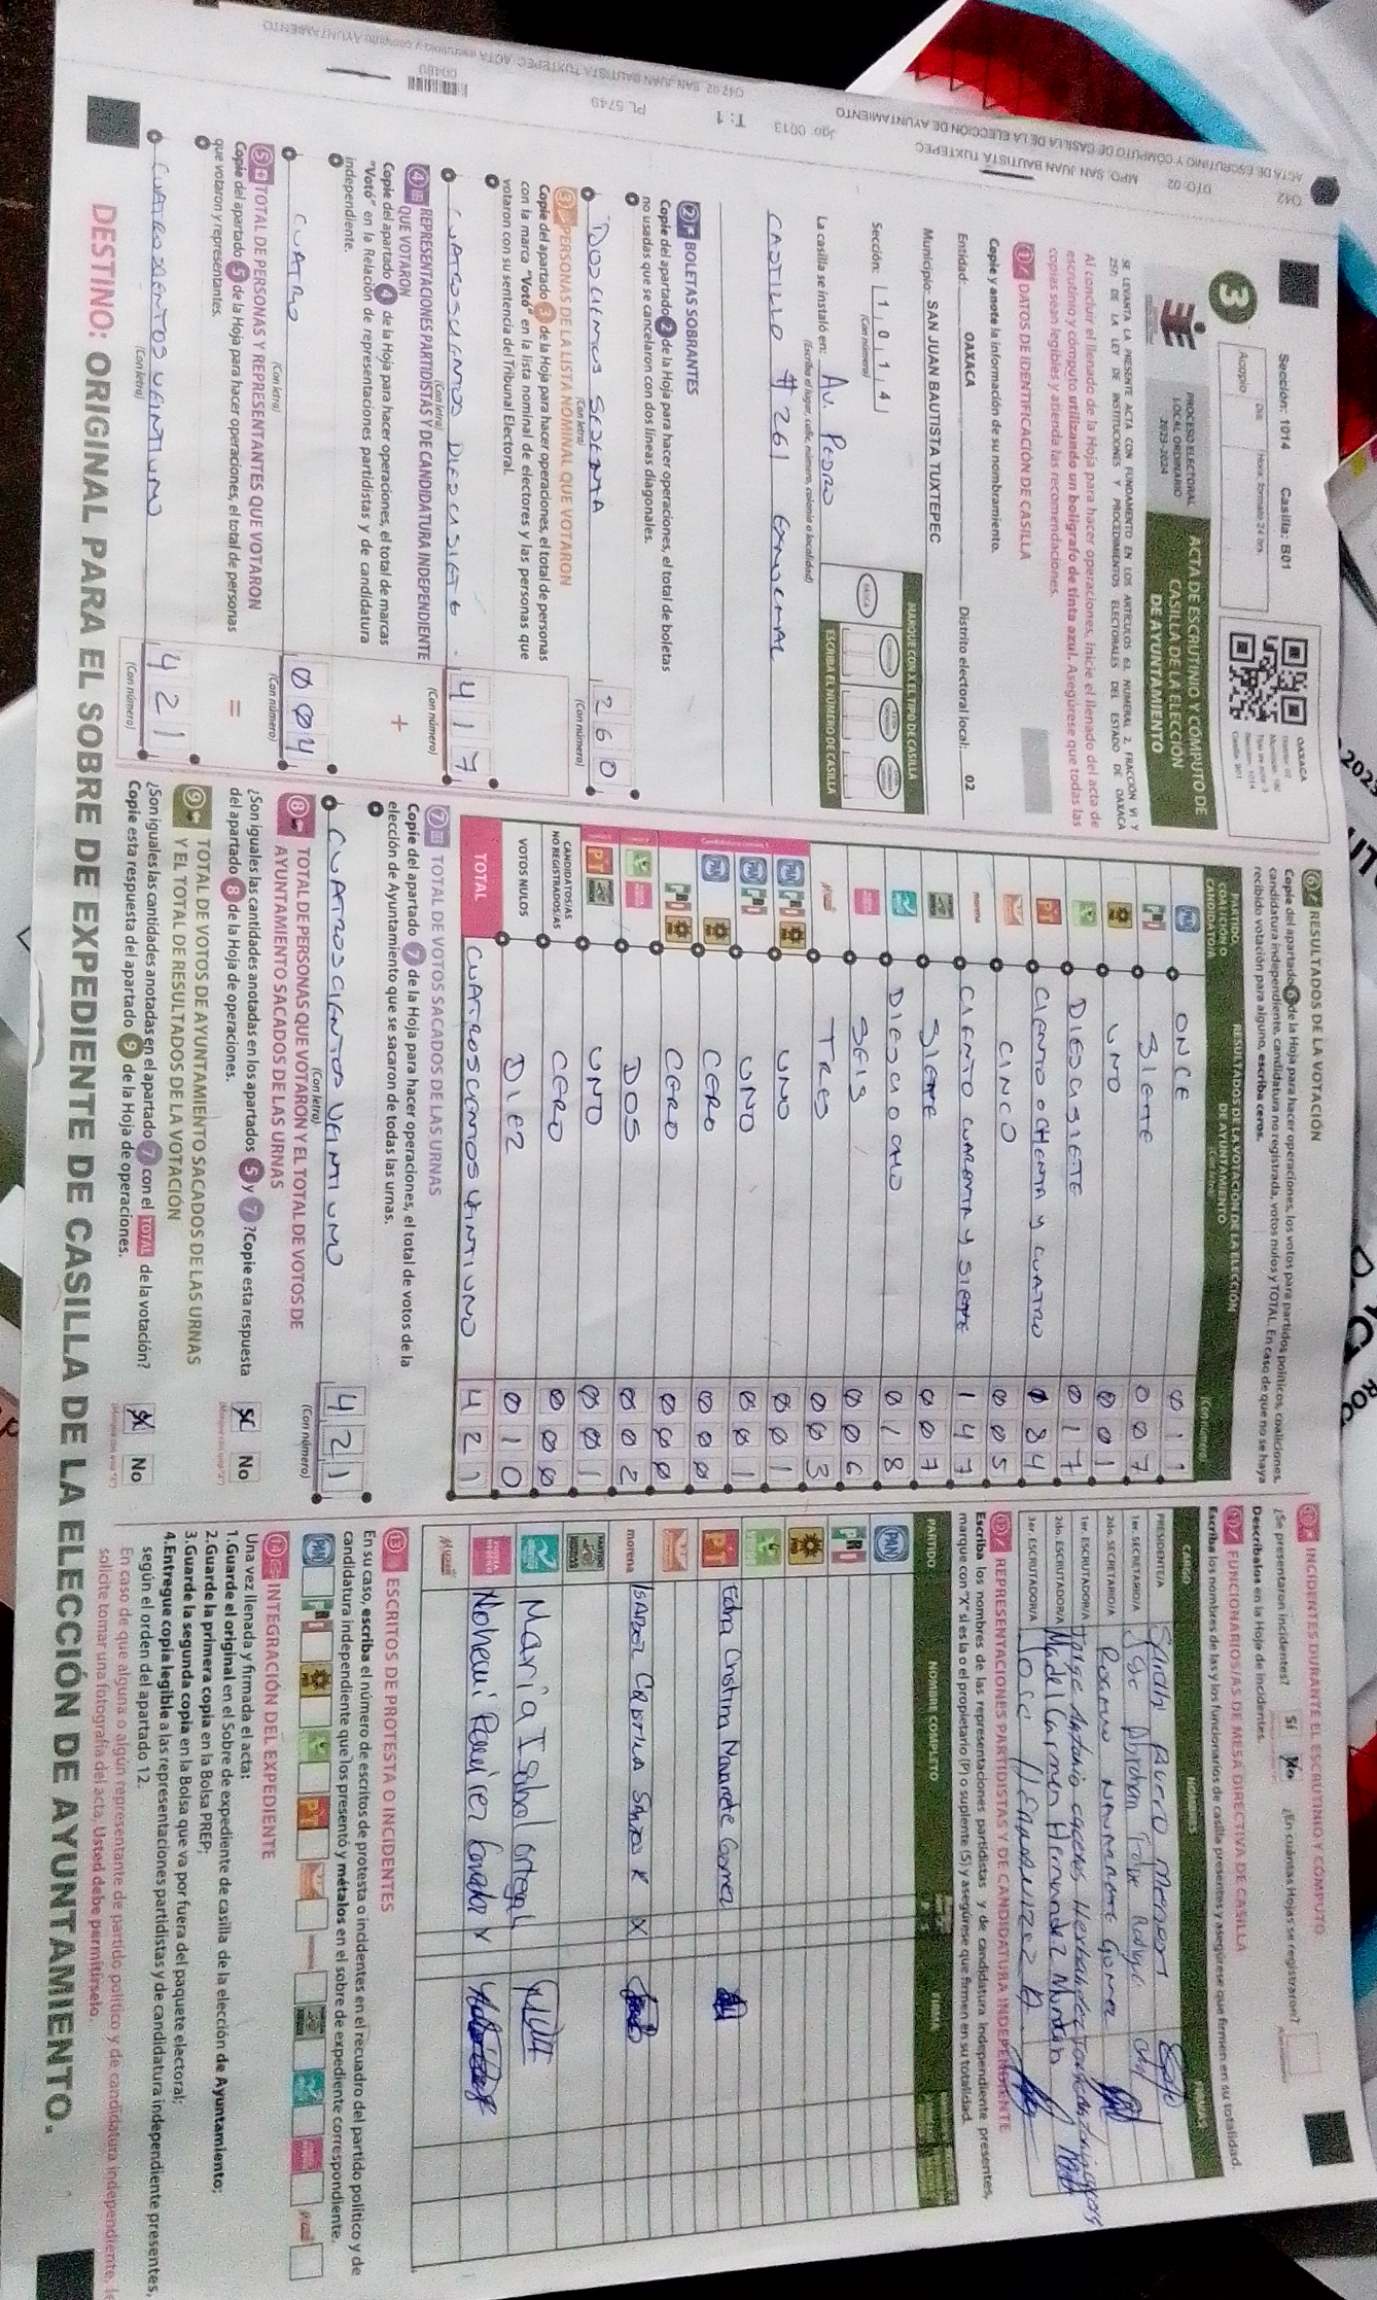 Sección: 1014 Casilla: B01
3
PROCESO ELECTORAL
LOCAL ORDINARIO
2023-2024
ACTA DE ESCRUTINIO Y CÓMPUTO DE
CASILLA DE LA ELECCIÓN
DE AYUNTAMIENTO
SE LEVANTA LA PRESENTE ACTA CON FUNDAMENTO EN LOS ARTÍCULOS 63, NUMERAL 2, FRACCIÓN VI Y
257, DE LA LEY DE INSTITUCIONES Y PROCEDIMIENTOS ELECTORALES DEL ESTADO DE OAXACA
Al concluir el llenado de la Hoja para hacer operaciones, inicie el llenado del acta de
escrutinio y cómputo utilizando un bolígrafo de tinta azul. Asegúrese que todas las
copias sean legibles y atienda las recomendaciones.
1 DATOS DE IDENTIFICACIÓN DE CASILLA
Copie y anote la información de su nombramiento.
Entidad: OAXACA Distrito electoral local: 02
Municipio: SAN JUAN BAUTISTA TUXTEPEC
Sección: 1 0 1 4
(Con número)
MARQUE CON X EL TIPO DE CASILLA
ESCRIBA EL NÚMERO DE CASILLA
(Escriba el lugar, calle, número, colonia o localidad)
La casilla se instaló en: AV. PEDRO
CASTILLO # 261
2 BOLETAS SOBRANTES
Copie del apartado 2 de la Hoja para hacer operaciones, el total de boletas
no usadas que se cancelaron con dos líneas diagonales.
DOSCIENTOS SESENTA 2 6 0
(Con letra) (Con número)
3 PERSONAS DE LA LISTA NOMINAL QUE VOTARON
Copie del apartado 3 de la Hoja para hacer operaciones, el total de personas
con la marca "Votó" en la lista nominal de electores y las personas que
votaron con su sentencia del Tribunal Electoral.
4 1 7
(Con letra) (Con número)
4 REPRESENTACIONES PARTIDISTAS Y DE CANDIDATURA INDEPENDIENTE
QUE VOTARON
Copie del apartado 4 de la Hoja para hacer operaciones, el total de marcas
"Votó" en la Relación de representaciones partidistas y de candidatura
independiente.
+
CUATRO 0 0 4
(Con letra) (Con número)
5 TOTAL DE PERSONAS Y REPRESENTANTES QUE VOTARON
Copie del apartado 5 de la Hoja para hacer operaciones, el total de personas
que votaron y representantes.
=
CUATROSCIENTOS VEINTIUNO 4 2 1
(Con letra) (Con número)
6 RESULTADOS DE LA VOTACIÓN
Copie del apartado 6 de la Hoja para hacer operaciones, los votos para partidos políticos, coaliciones,
candidatura independiente, candidatura no registrada, votos nulos y TOTAL. En caso de que no se haya
recibido votación para alguno, escriba ceros.
PARTIDO, COALICIÓN O CANDIDATO/A RESULTADOS DE LA VOTACIÓN DE LA ELECCIÓN DE AYUNTAMIENTO (Con letra) (Con número)
PAN ONCE 0 1 1
PRI SIETE 0 0 7
UNO 0 0 1
DIESCISIETE 0 1 7
PT CIENTO OCHENTA Y CUATRO 1 8 4
CINCO 0 0 5
morena CIENTO CUARENTA Y SIETE 1 4 7
SIETE 0 0 7
DIESCIOCHO 0 1 8
SEIS 0 0 6
TRES 0 0 3
PAN PRI UNO 0 0 1
PAN PRI UNO 0 0 1
PAN CERO 0 0 0
PRI CERO 0 0 0
DOS 0 0 2
PT UNO 0 0 1
CANDIDATOS/AS NO REGISTRADOS/AS CERO 0 0 0
VOTOS NULOS DIEZ 0 1 0
TOTAL CUATROSCIENTOS VEINTIUNO 4 2 1
7 TOTAL DE VOTOS SACADOS DE LAS URNAS
Copie del apartado 7 de la Hoja para hacer operaciones, el total de votos de la
elección de Ayuntamiento que se sacaron de todas las urnas.
CUATROSCIENTOS VEINTIUNO 4 2 1
(Con letra) (Con número)
8 TOTAL DE PERSONAS QUE VOTARON Y EL TOTAL DE VOTOS DE
AYUNTAMIENTO SACADOS DE LAS URNAS
¿Son iguales las cantidades anotadas en los apartados 5 y 7? Copie esta respuesta
del apartado 8 de la Hoja de operaciones.
Sí No
9 TOTAL DE VOTOS DE AYUNTAMIENTO SACADOS DE LAS URNAS
Y EL TOTAL DE RESULTADOS DE LA VOTACIÓN
¿Son iguales las cantidades anotadas en el apartado 7 con el TOTAL de la votación?
Copie esta respuesta del apartado 9 de la Hoja de operaciones.
Sí No
10 INCIDENTES DURANTE EL ESCRUTINIO Y CÓMPUTO
¿Se presentaron incidentes? Sí No ¿En cuántas Hojas se registraron?
Descríbalos en la Hoja de incidentes.
11 FUNCIONARIOS/AS DE MESA DIRECTIVA DE CASILLA
Escriba los nombres de las y los funcionarios de casilla presentes y asegúrese que firmen en su totalidad.
CARGO NOMBRES FIRMAS
PRESIDENTE/A
1er. SECRETARIO/A
2do. SECRETARIO/A
1er. ESCRUTADOR/A Jorge Antonio
2do. ESCRUTADOR/A Ma del Carmen Hernandez
3er. ESCRUTADOR/A Jose
12 REPRESENTACIONES PARTIDISTAS Y DE CANDIDATURA INDEPENDIENTE
Escriba los nombres de las representaciones partidistas y de candidatura independiente presentes,
marque con "X" si es la o el propietario (P) o suplente (S) y asegúrese que firmen en su totalidad.
PARTIDO NOMBRE COMPLETO FIRMA
PAN
PRI
PT Edna Cristina Navarrete Gomez
morena ISABEL CRISTINA X
Maria Isabel Ortega
Nohemi Ramirez
13 ESCRITOS DE PROTESTA O INCIDENTES
En su caso, escriba el número de escritos de protesta o incidentes en el recuadro del partido político y de
candidatura independiente que los presentó y métalos en el sobre de expediente correspondiente.
14 INTEGRACIÓN DEL EXPEDIENTE
Una vez llenada y firmada el acta:
1.Guarde el original en el Sobre de expediente de casilla de la elección de Ayuntamiento;
2.Guarde la primera copia en la Bolsa PREP;
3.Guarde la segunda copia en la Bolsa que va por fuera del paquete electoral;
4.Entregue copia legible a las representaciones partidistas y de candidatura independiente presentes,
según el orden del apartado 12.
En caso de que alguna o algún representante de partido político y de candidatura independiente, le
solicite tomar una fotografía del acta, Usted debe permitírselo.
DESTINO: ORIGINAL PARA EL SOBRE DE EXPEDIENTE DE CASILLA DE LA ELECCIÓN DE AYUNTAMIENTO.
042 DTO: 02 MPO: SAN JUAN BAUTISTA TUXTEPEC
ACTA DE ESCRUTINIO Y CÓMPUTO DE CASILLA DE LA ELECCIÓN DE AYUNTAMIENTO
Jgo: 0013 T: 1
PL 5749